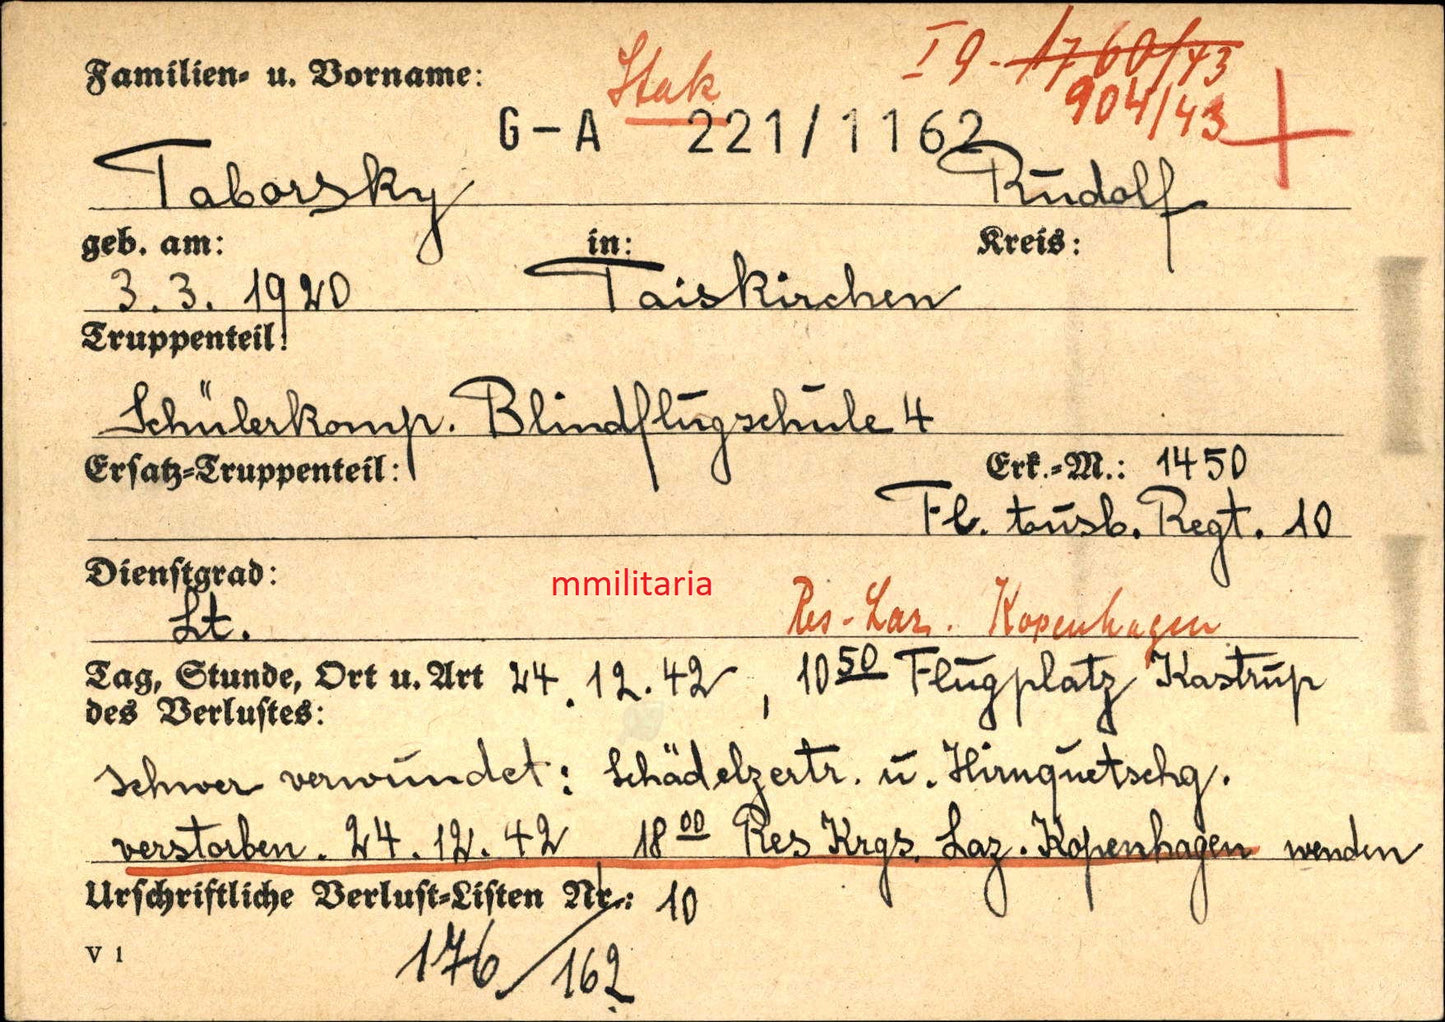 Familien- u. Vorname:
Stak
I 9 - 1760/43
904/43
G-A 221/1162
Taborsky Rudolf
geb. am: in: Kreis:
3. 3. 1920 Taiskirchen
Truppenteil:
Schülerkomp. Blindflugschule 4
Ersatz-Truppenteil: Erk.-M.: 1450
Fl. ausb. Regt. 10
Dienstgrad:
mmilitaria
Lt. Res-Laz. Kopenhagen
Tag, Stunde, Ort u. Art 24. 12. 42, 10 50 Flugplatz Kastrup
des Verlustes:
schwer verwundet: Schädelzertr. u. Hirnquetschg.
verstorben. 24. 12. 42 18 00 Res Krgs. Laz. Kopenhagen wenden
Urschriftliche Verlust-Listen Nr.: 10
176/162
V 1